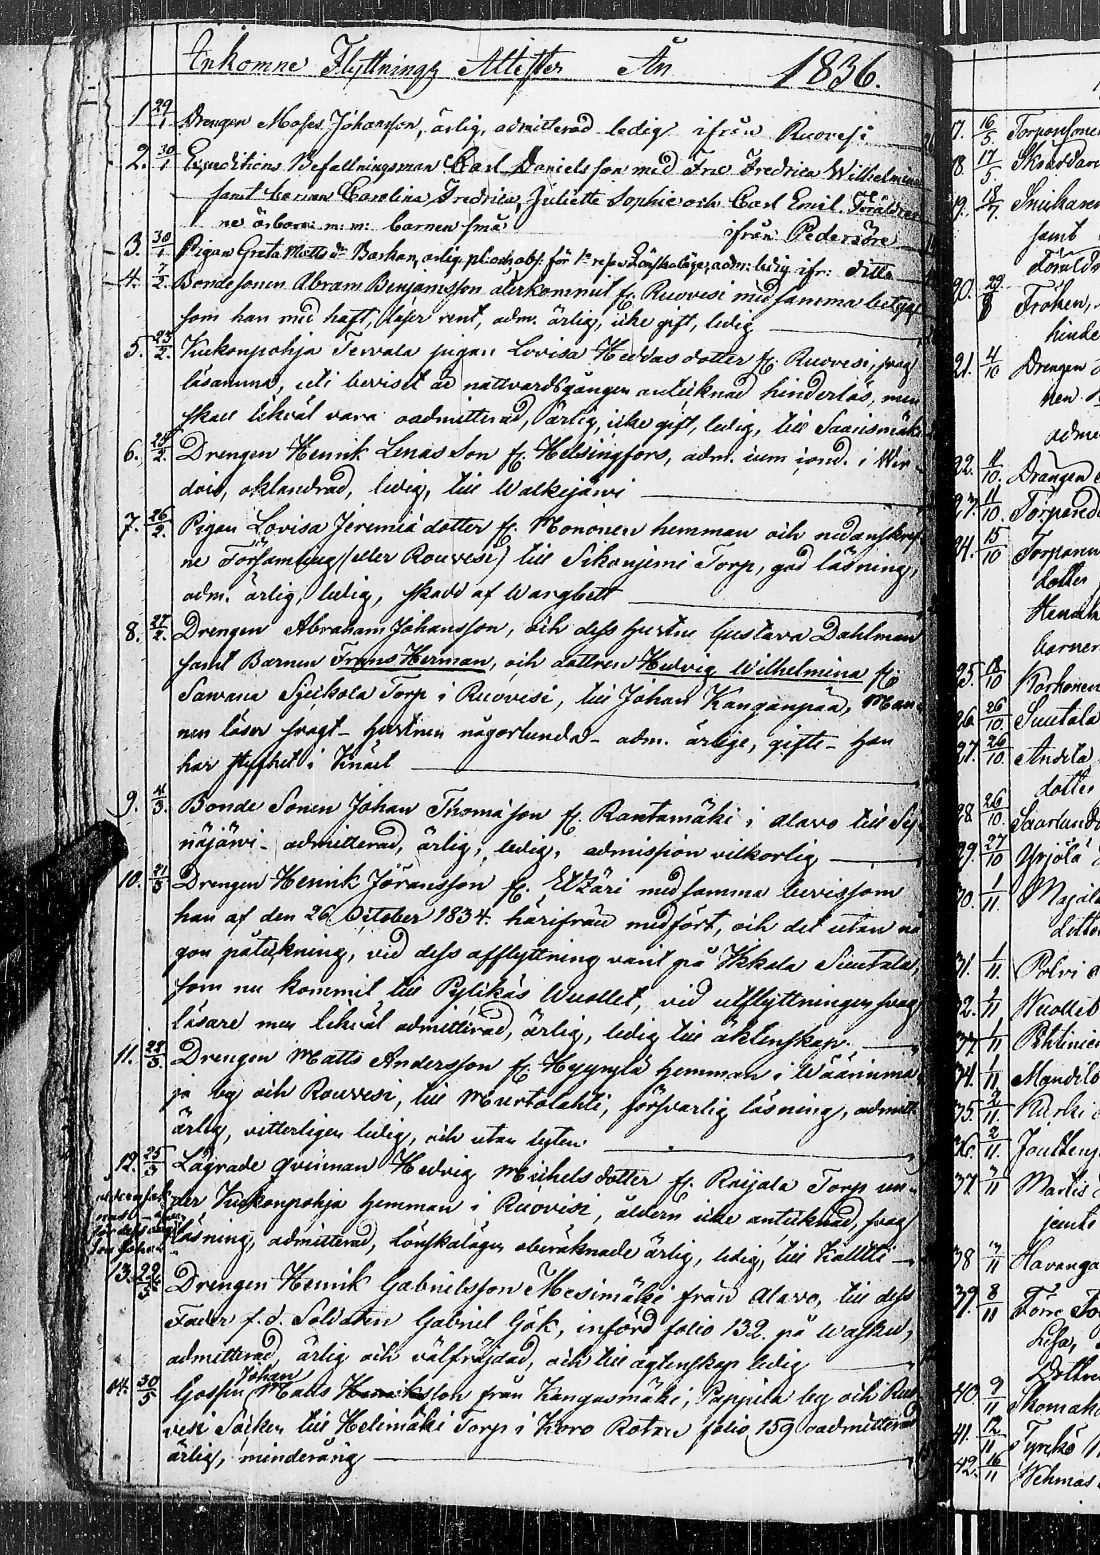 Ankomne Flyttnings Attester År 1836.
1 29/1 Drengen Moses Johansson, ärlig, admitterad ledig ifrån Ruovesi
2. 30/1 Expeditions Befallningsman Carl Danielsson med Fru Fredrica Wilhelmina
samt barnen Carolina Fredrica, Juliette Sophie och Carl Emil. Föräldrar
ne ärbara m: m: barnen små ifrån Pedersöre
3. 30/1 Pigan Greta Matts dr Backan, ärlig adm: ledig ifr: ditto
4. 7/2 Bondesonen Abram Benjamsson återkommit fr. Ruovesi med samma betyg
som han med haft, läser rent, adm. ärlig, icke gift, ledig
5. 23/2. Kukonpohja Tervala pigan Lovisa Heddasdotter fr. Ruovesi, svag
läsamma, uti beviset är nattvardsgången antecknad hinderlös, men
skall likväl vara oadmitterad, ärlig, icke gift, ledig, till Saarismäki
6. 24/2. Drengen Henrik Lenasson fr. Helsingfors, adm. cum cond. i Wir-
dois, oklandrad, ledig, till Walkejärwi
7. 26/2. Pigan Lovisa Jeremiädotter fr. Mononen hemman och nedanskref
ne Församling (eller Rouvesi) till Sikoniemi Torp, god läsning,
adm. ärlig, ledig, skadd af Wargbett
8. 27/2. Drengen Abraham Johansson, och dess hustru Gustava Dahlman
samt Barnen Frans Herman, och dottren Hedvig Wilhelmina fr.
Sawana Torp i Ruovesi, till Johan Kanganpää, Man-
nen läser svagt - hustrun någorlunda - adm. ärlige, gifte - han
har styfhet i Knäet
9. 4/3. Bonde Sonen Johan Thomasson fr. Rantamäki i Alavo till Sep
näjärwi - admitterad, ärlig, ledig, admission vilkorlig
10. 21/3 Drengen Henrik Jöransson fr. Etzäri med samma bevis som
han af den 26 October 1834. härifrån medfört, och det utan nå
gon påtekning, vid dess afflyttning varit på Ikkala Siutala,
som nu kommit till Pylikäs Wuollet, vid utflyttningen svag
läsare men likväl admitterad, ärlig, ledig till äktenskap.
11. 28/3. Drengen Matts Andersson fr. Hyynylä hemman i Wäärinma
ja by och Rouvesi, till Murtolahti, försvarlig läsning, admitt.
ärlig, vitterligen ledig, och utan lyten
12. 25/5 Lägrade Qvinnan Hedvig Michelsdotter fr. Raijala Torp un-
der Kukonpohja hemman i Ruovesi, åldern icke antecknad, svag
läsning, admitterad, Lönskaläger oberäknade ärlig, ledig, till Kallili
13. 29/5 Drengen Henrik Gabrielsson Mesimäki från Alavo, till dess
Fader f. d. Soldaten Gabriel Gök, införd folio 132. på Wasku,
admitterad, ärlig och välfrejdad, och till ägtenskap ledig
14. 30/5 Gossen Johan Matts Henriksson från Kangasmäki, Pappila by och Ruo
vesi Socken till Helimäki Torp i Koro Rotan folio 159 oadmitterad
ärlig, minderårig
17. 16/5 Torparsonen
18. 17/5
19. 18/7. Snickaren
samt
Föräld
20. 29/8 Fröken,
hinde
21. 4/10 Drengen
nen
adme
22. 4/10. Drängen
23. 11/10. Torpared
24. 15/10 Torparen
dotter
Hendri
barnen
25. 18/10 Korhonen
26. 26/10 Siutala
27. 26/10. Anttila
dotter
28 26/10. Saarlund
29. 27/10 Yrjölä
30. 1/11. Majala
Lotta
31. 1/11. Polvi
32. 1/11 Wuollet
33. 1/11 Pihtinie
34. 1/11 Mandilo
35. 2/11 Kurki
36. 2/11. Jouthen
37 7/11 Martis
jemte
38 7/11 Havanga
39. 8/11 Förre
Lisa,
Dottren
40. 9/11 Skomak
41. 12/11 Tyrkö
42. 16/11 Wehmas